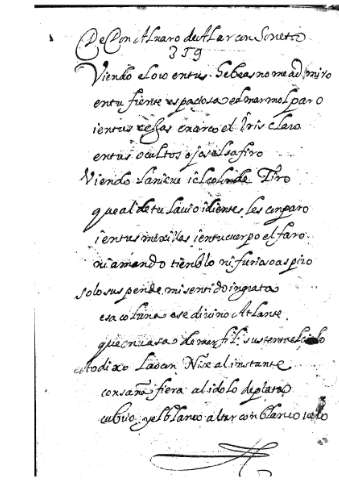 De Don Alvaro de Alarcon Soneto
359
Viendo el oro en tus hebras no me admiro
en tu frente espaçiosa el marmol paro
i en tus cejas en arco el Iris claro
en tus ocultos ojos al safiro
Viendo la nieve i el col de Tiro
que al de tu lavio i dientes les conparo
i en tus mexillas i en tu cuerpo el faro
ni amando tienblo ni furioso aspiro
solo suspende mi sentido ingrata
esa coluna ese divino Atlante
que en vasa de marfil sustenta el cielo
dixo Laocan Nise al instante
con saña fiera al idolo de plata
cubrio y el blanco altar con blanco velo